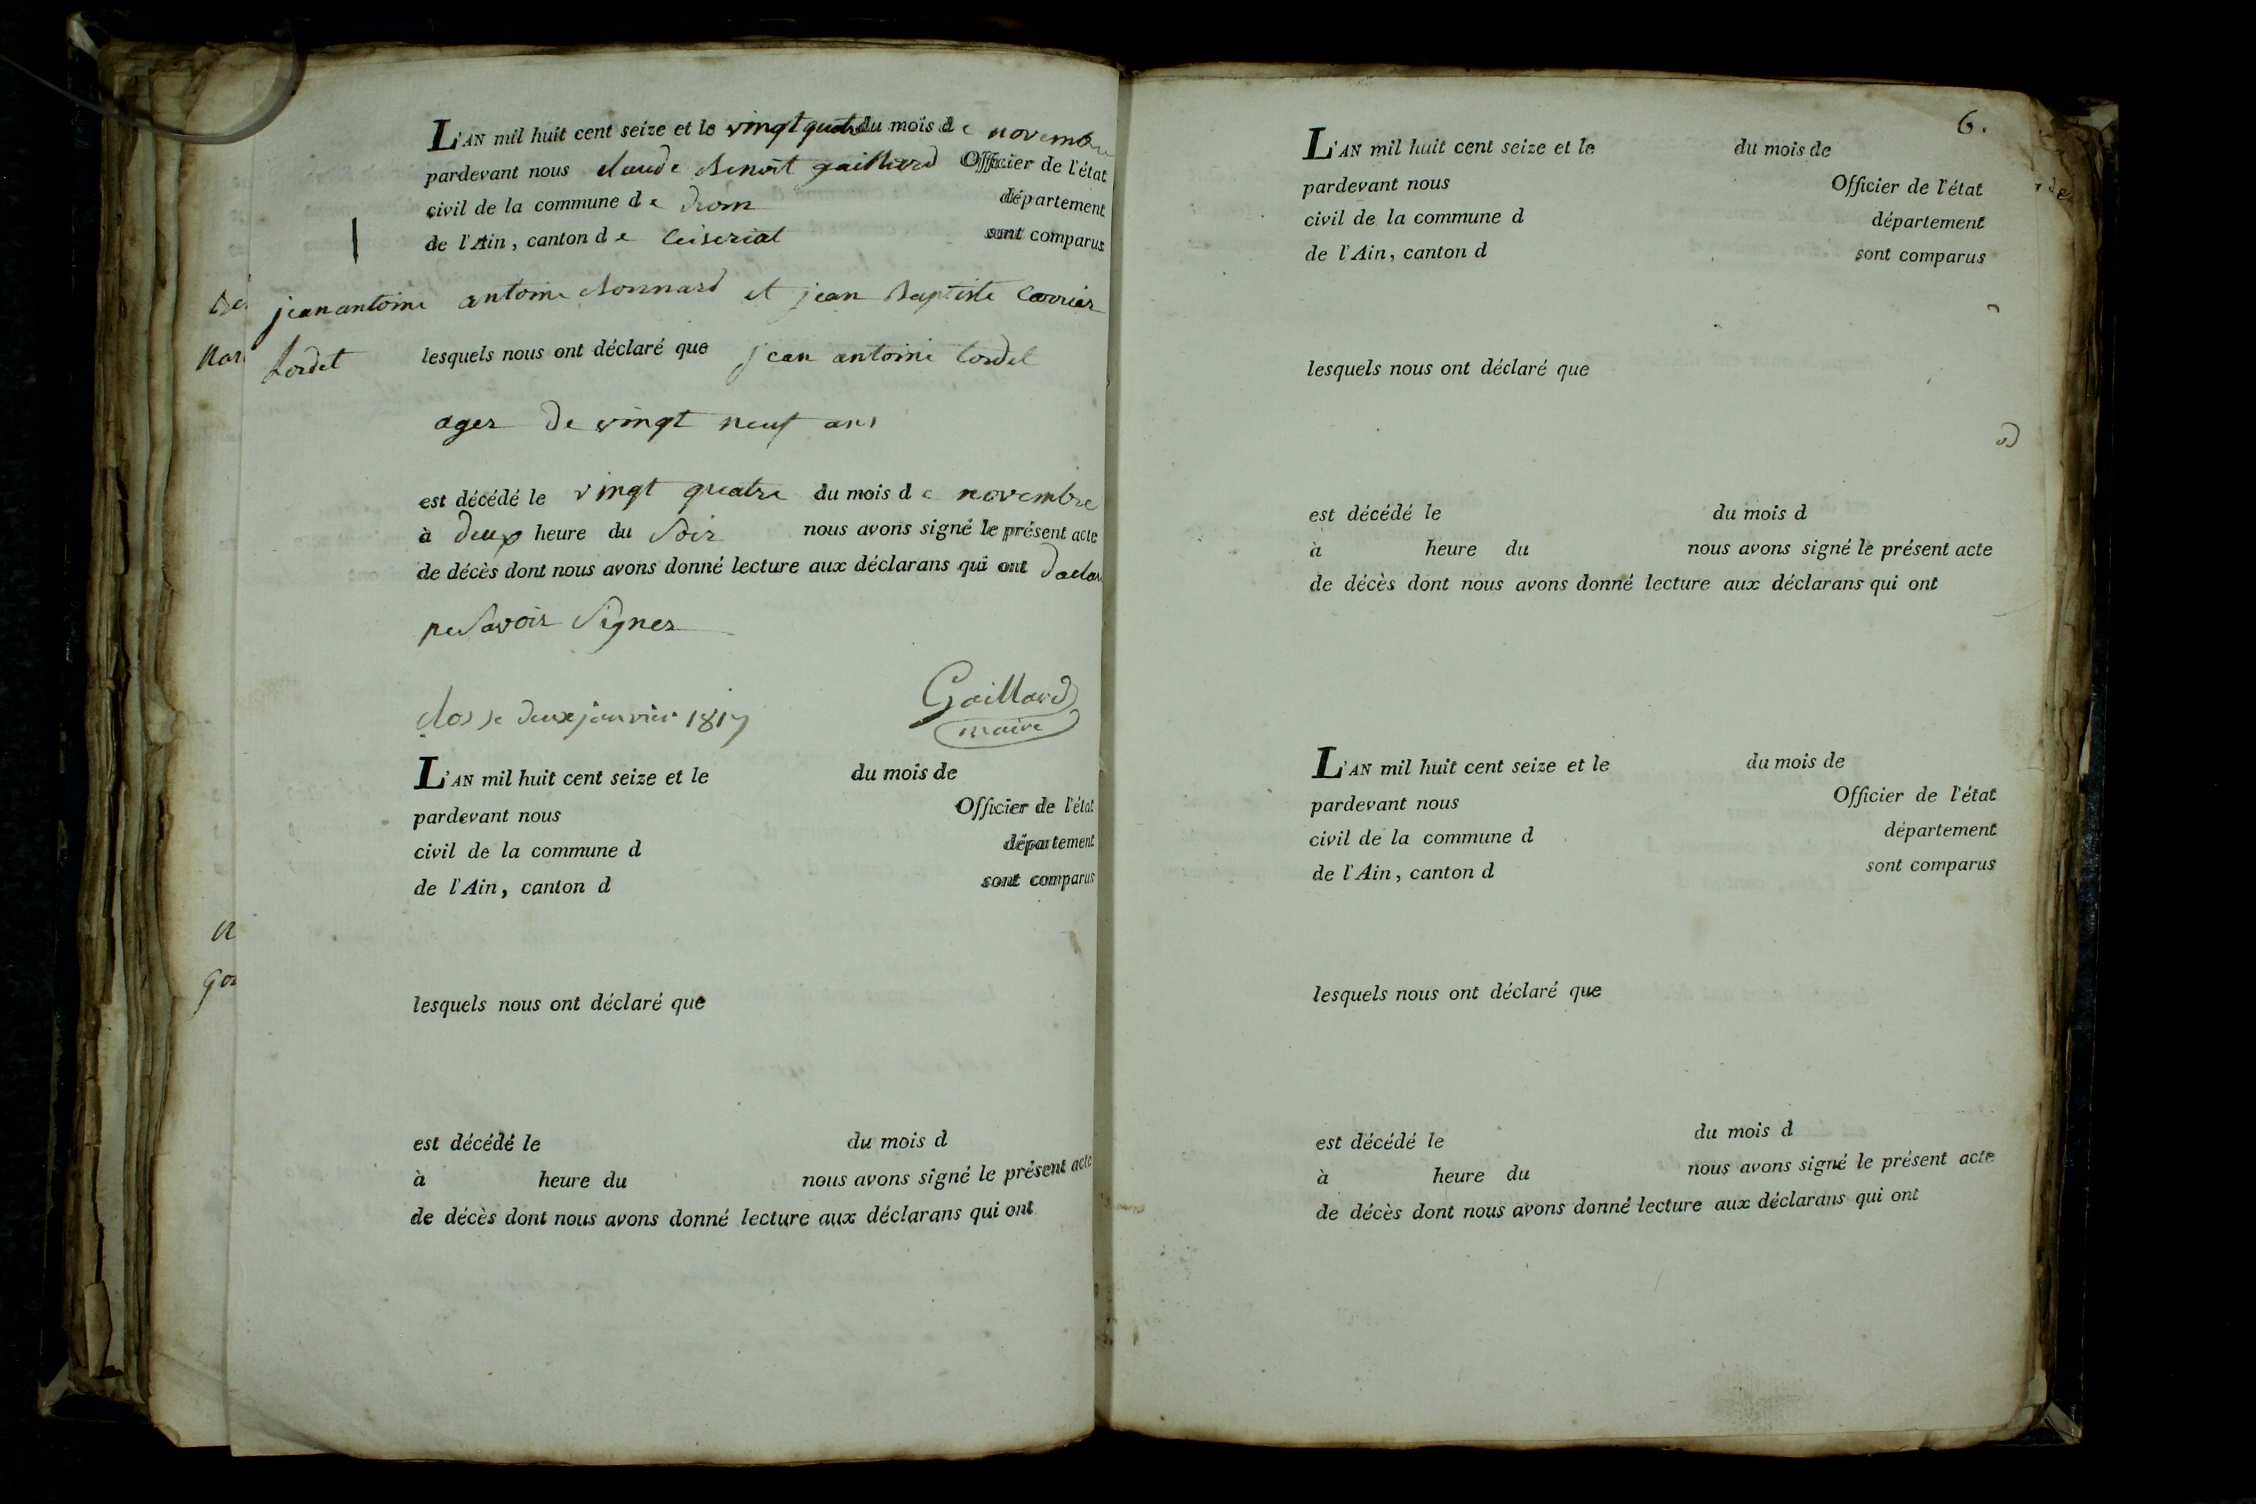 L'AN mil huit cent seize et le vingt quatre du mois de novembre
pardevant nous claude Benoit gailliard Officier de l'état
civil de la commune de drom département
de l'Ain, canton de Ceiseriat sont comparus
jean antoine
Lordet
antoine Bonnard et jean Baptiste Carrier
lesquels nous ont déclaré que jean antoine Lordet
ages de vingt neuf ans
est décédé le vingt quatre du mois de novembre
à deux heure du Soir nous avons signé le présent acte
de décès dont nous avons donné lecture aux déclarans qui ont
ne Savoir Signer
clos le deux janvier 1817
Gaillard
maire
L'AN mil huit cent seize et le du mois de
pardevant nous Officier de l'état
civil de la commune d département
de l'Ain, canton d sont comparus
lesquels nous ont déclaré que
est décédé le du mois d
à heure du nous avons signé le présent acte
de décès dont nous avons donné lecture aux déclarans qui ont
6.
L'AN mil huit cent seize et le du mois de
pardevant nous Officier de l'état
civil de la commune d département
de l'Ain, canton d sont comparus
lesquels nous ont déclaré que
est décédé le du mois d
à heure du nous avons signé le présent acte
de décès dont nous avons donné lecture aux déclarans qui ont
L'AN mil huit cent seize et le du mois de
pardevant nous Officier de l'état
civil de la commune d département
de l'Ain, canton d sont comparus
lesquels nous ont déclaré que
est décédé le du mois d
à heure du nous avons signé le présent acte
de décès dont nous avons donné lecture aux déclarans qui ont